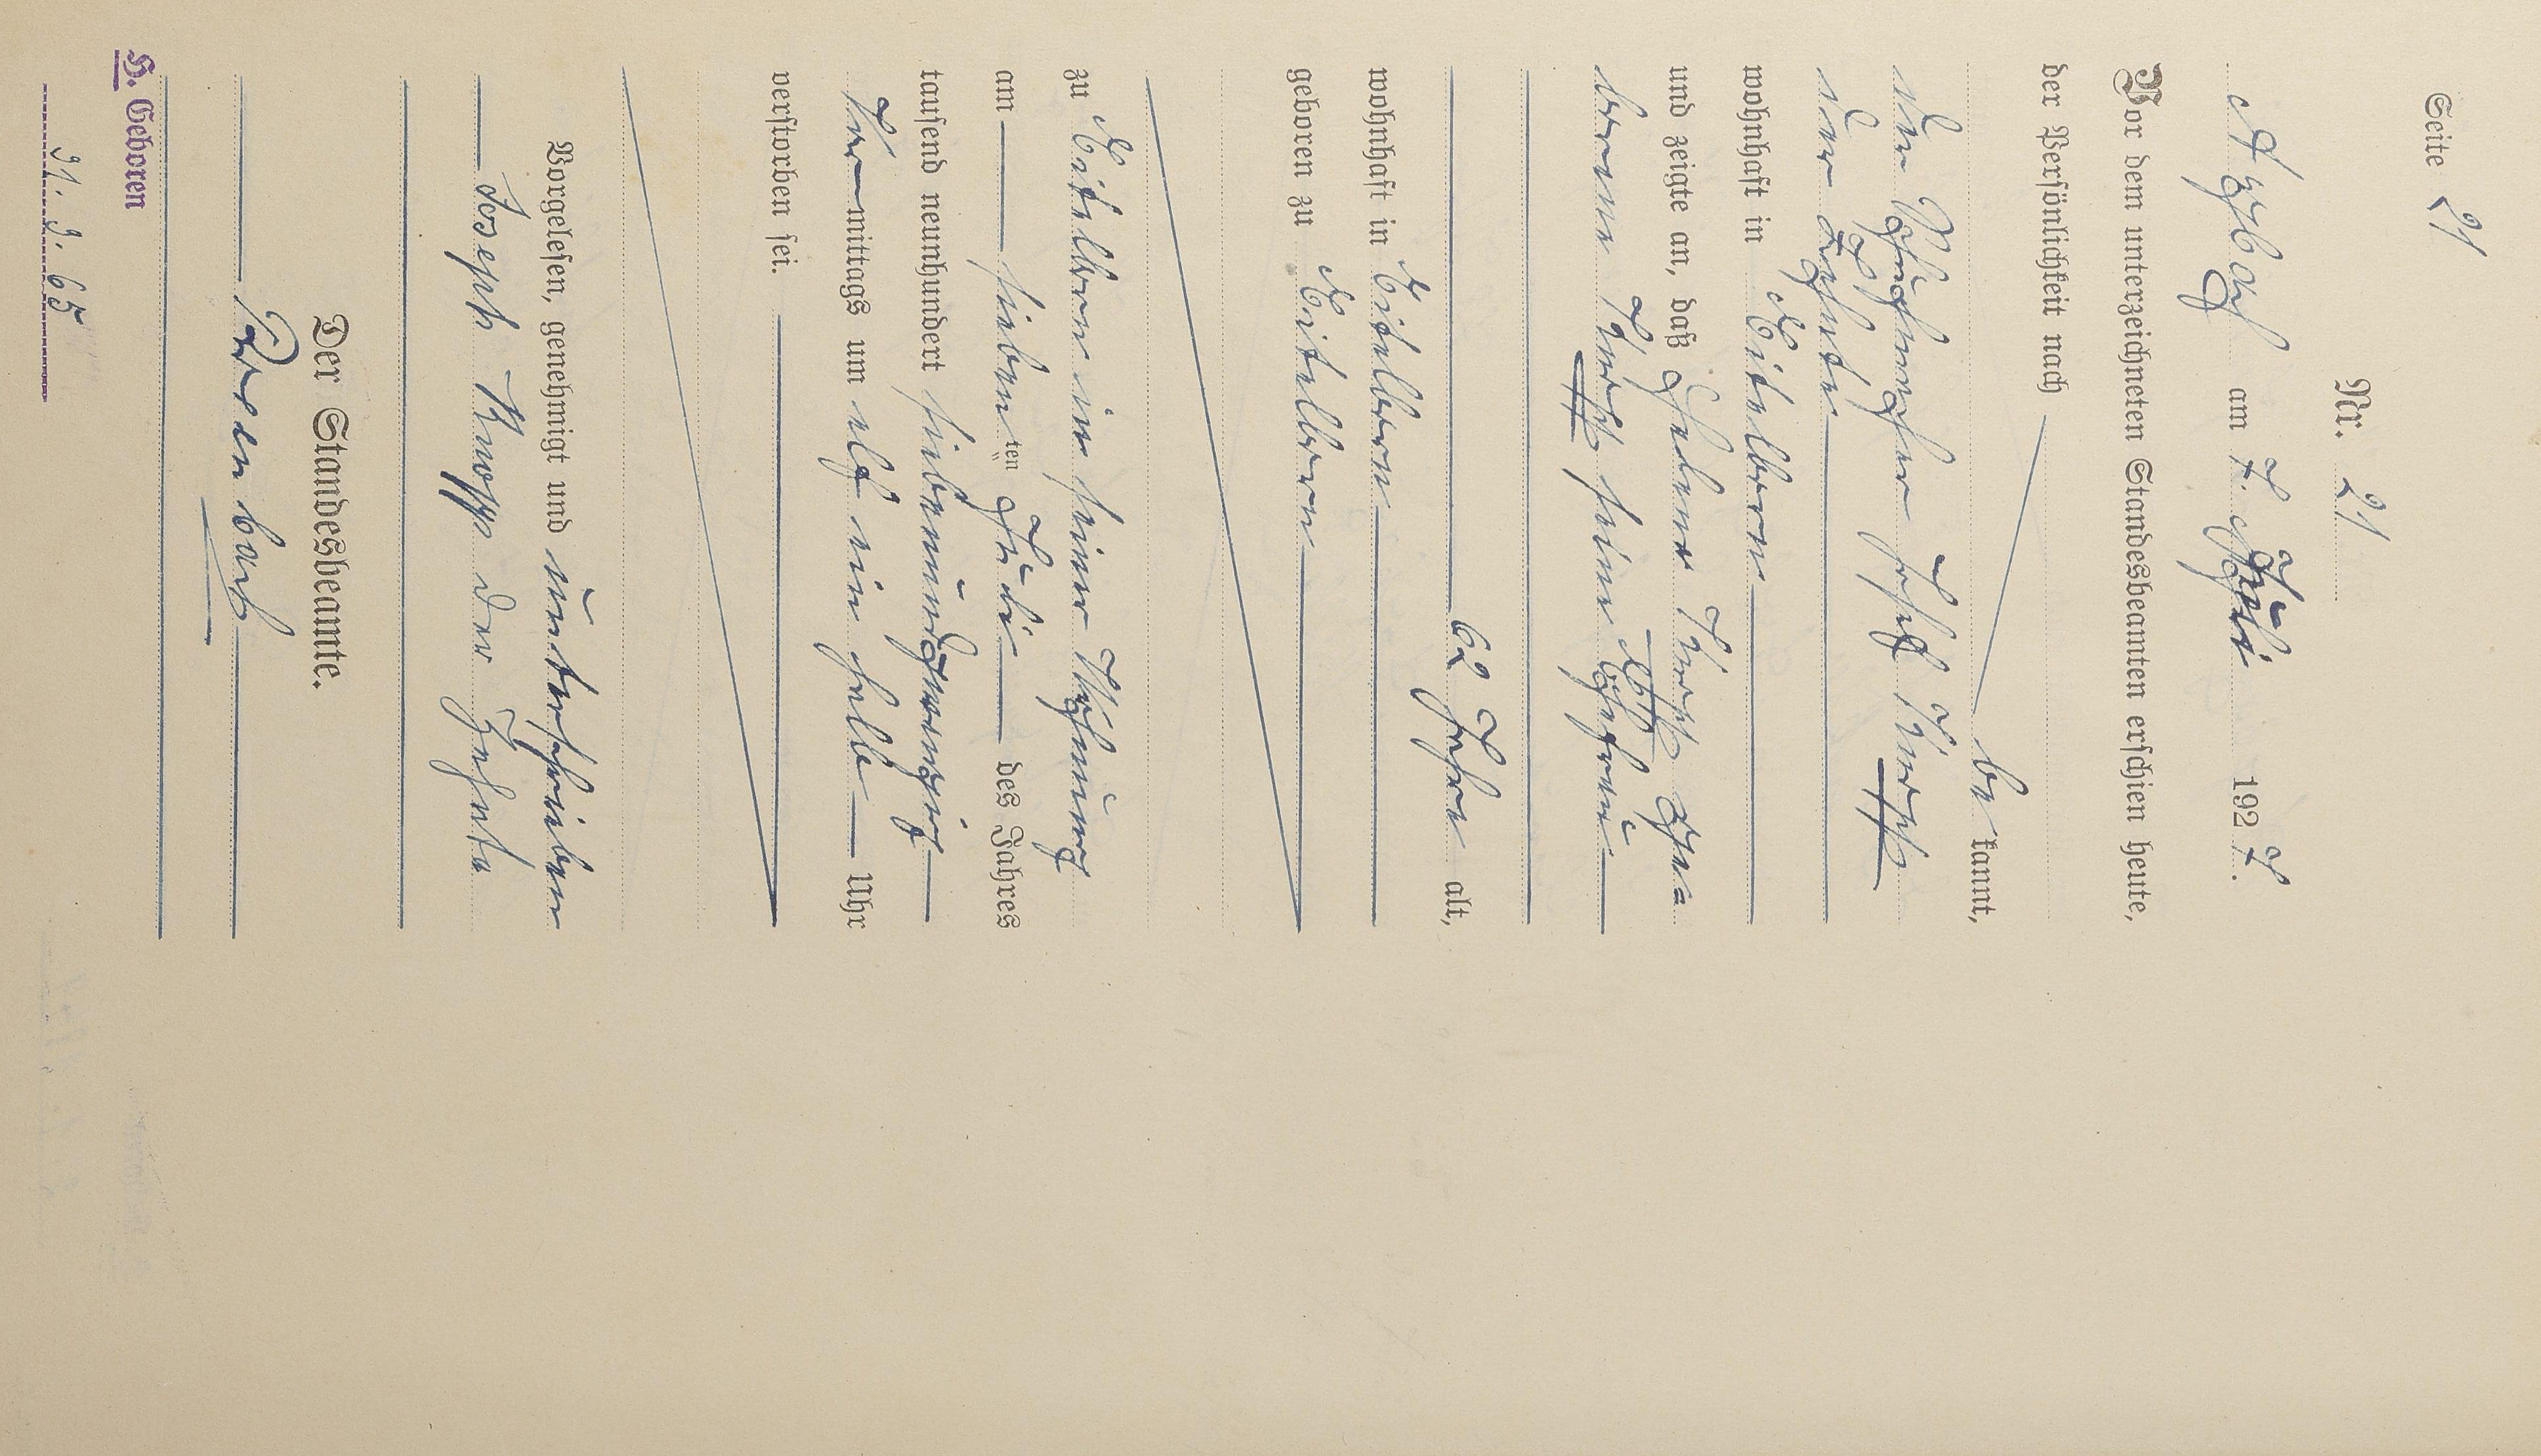 Seite 21
Nr. 21
Arzbach am 7. Juli 1927.
Vor dem unterzeichneten Standesbeamten erschien heute,
der Persönlichkeit nach
be kannt,
der Josef Knopp
der Zehnte
wohnhaft in Eitelborn
und zeigte an, daß Helene Knopp ge=
borene Knopp seine Ehefrau
62 Jahre alt,
wohnhaft in Eitelborn
geboren zu Eitelborn
zu Eitelborn in seiner Wohnung
am siebenten Juli des Jahres
tausend neunhundert siebenundzwanzig
Vormittags um elf ein halb Uhr
verstorben sei.
Vorgelesen, genehmigt und unterschrieben
Joseph Knopp der Zehnte
Der Standesbeamte.
H. Geboren
21. 3. 65